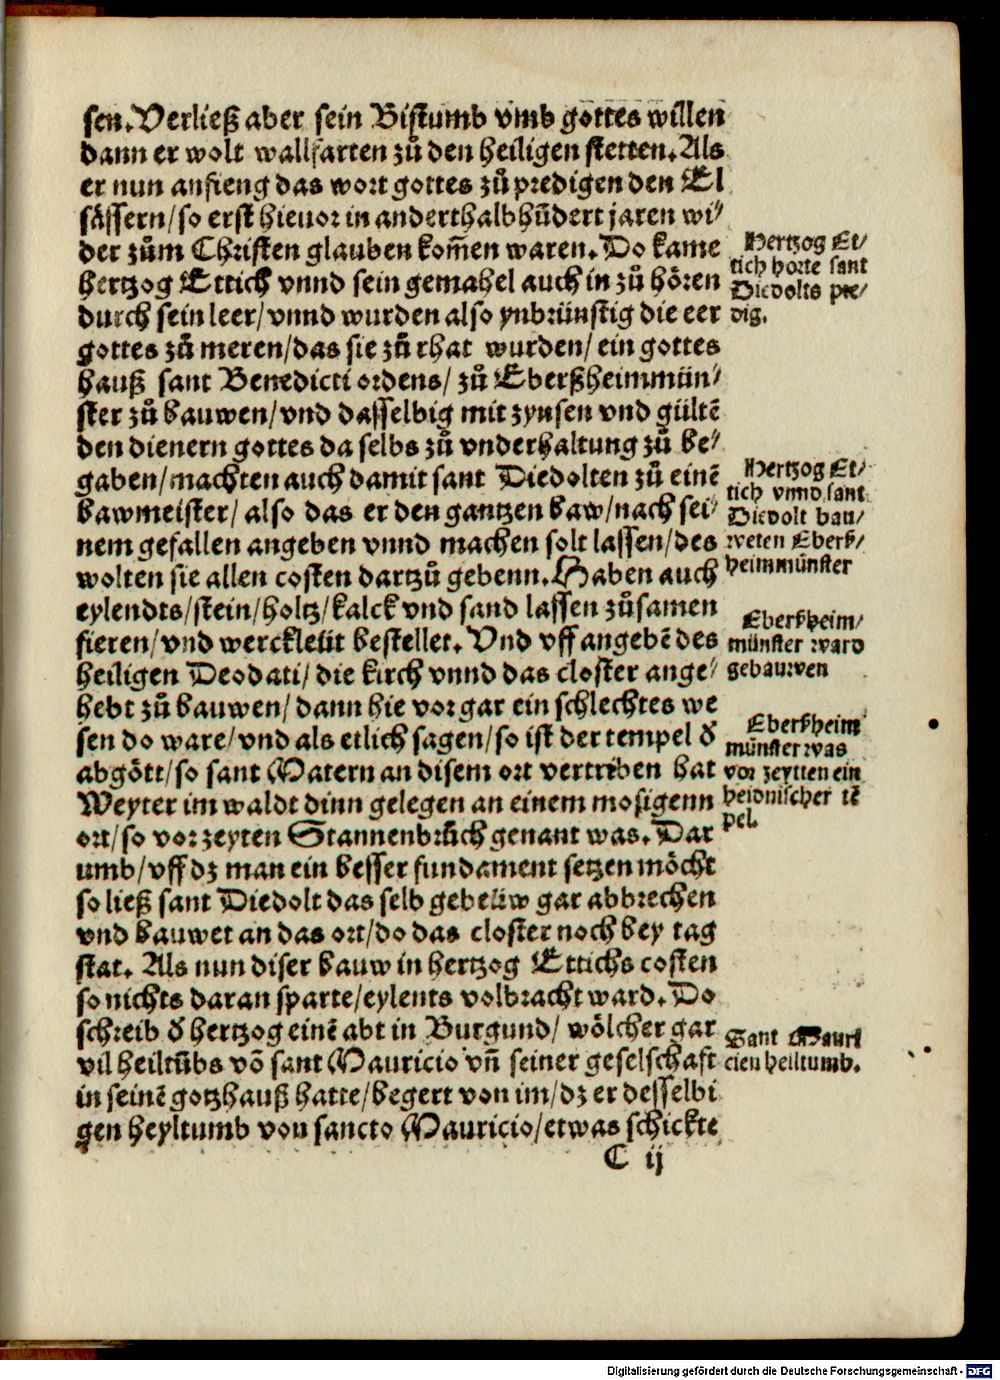 sen. Verließ aber sein Bistumb vmb gottes willen
dann er wolt wallfarten zů den heiligen stetten. Als
er nun anfieng das wort gottes zů predigen den El
sässern/so erst hieuor in anderthalb hũdert jaren wi⸗
der zům Christen glauben kom̃en waren. Do kame
hertzog Ettich vnnd sein gemahel auch in zů hören
durch sein leer/vnnd wurden also ynbrünstig die eer
gottes zů meren/das sie zů rhat wurden/ein gottes
hauß sant Benedicti ordens/zů Eberßheimmün⸗
ster zů bauwen/vnd dasselbig mit zynsen vnd gültẽ
den dienern gottes da selbs zů vnderhaltung zů be⸗
gaben/machten auch damit sant Diedolten zů einẽ
bawmeister/also das er den gantzen baw/nach sei⸗
nem gefallen angeben vnnd machen solt lassen/des
wolten sie allen costen dartzů gebenn. Haben auch
eylendts/stein/holtz/kalck vnd sand lassen zůsamen
fieren/vnd werckleüt bestellet. Vnd vff angebẽ des
heiligen Deodati/die kirch vnnd das closter ange⸗
hebt zů bauwen/dann hie vor gar ein schlechtes we
sen do ware/vnd als etlich sagen/so ist der tempel d̕
abgött/so sant Matern an disem ort vertriben hat
Weyter im waldt dinn gelegen an einem mosigenn
ort/so vor zeyten Stannenbrůch genant was. Dar
umb/vff dz man ein besser fundament setzen möcht
so ließ sant Diedolt das selb gebeüw gar abbrechen
vnd bauwet an das ort/do das closter noch bey tag
stat. Als nun diser bauw in hertzog Ettichs costen
so nichts daran sparte/eylents volbracht ward. Do
schreib d̕ hertzog einẽ abt in Burgund/wölcher gar
vil heiltũbs võ sant Mauricio vñ seiner geselschaft
in seinẽ gotzhauß hatte/begert von im/dz er desselbi
gen heyltumb von sancto Mauricio/etwas schickte
C ij
Hertzog Et⸗
tich horte sant
Diedolts pre⸗
dig.
Hertzog Et⸗
tich vnnd sant
Diedolt bau⸗
weten Eberß⸗
heimmünster
Eberßheim⸗
münster ward
gebauwen
Eberßheim
münster was
vor zeytten ein
heidnischer tẽ
pel.
Sant Mauri
cien heiltumb.
Digitalisierung gefördert durch die Deutsche Forschungsgemeinschaft - DFG